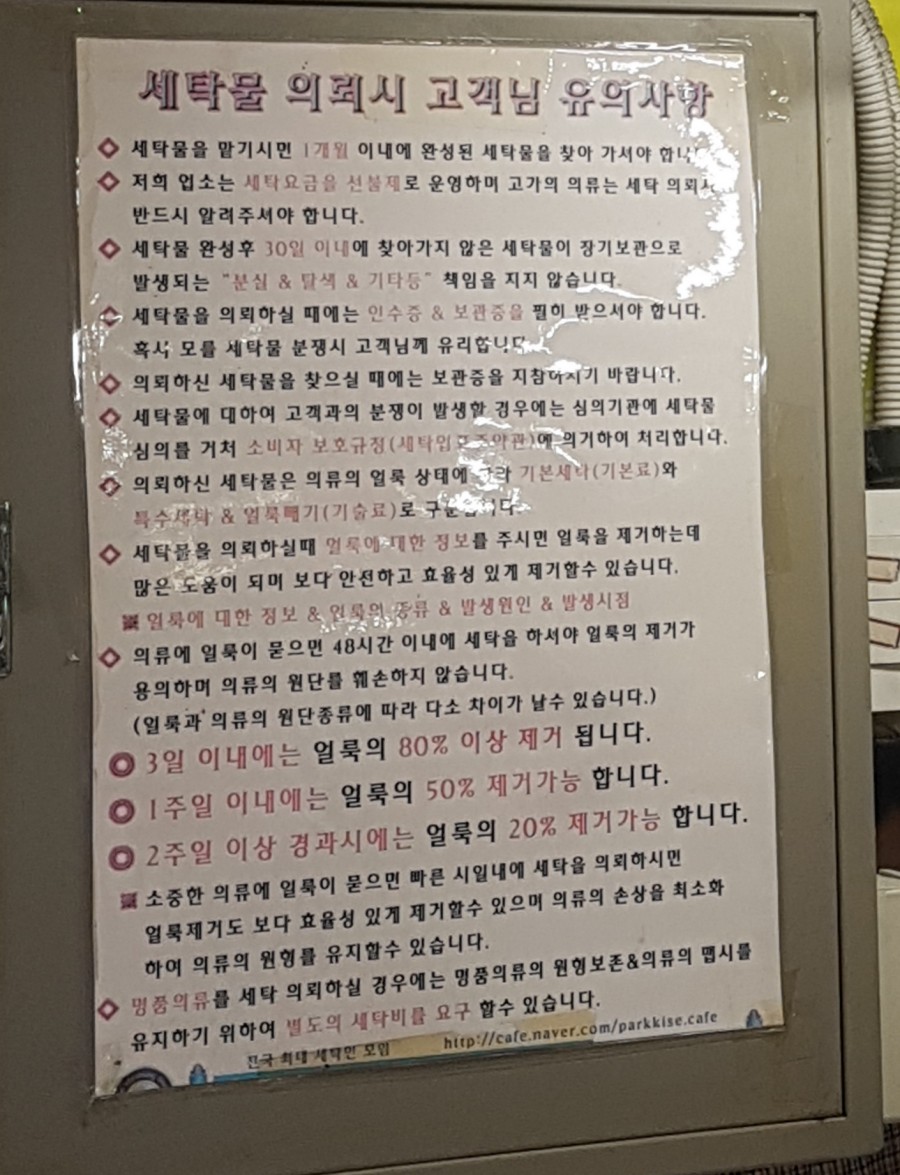 세탁물 의뢰시 고객님 유의사항
세탁물을 맡기시면 1개월 이내에 완성된 세탁물을 찾아 가셔야
저희 업소는 세탁요금을 선불제로 운영하며 고가의 의류는 세탁
반드시 알려주셔야 합니다.
세탁물 완성후 30일 이내에 찾아가지 않은 세탁물이 장기보관으로
발생되는 "분실 & 탈색 & 기타등" 책임을 지지 않습니다.
세탁물을 의뢰하실 때에는 인수증 & 보관증을 필히 받으셔야 합니다.
혹시 모를 세탁물 분쟁시 고객님께 유리합니다.
의뢰하신 세탁물을 찾으실 때에는 보관증을 지참하시기 바랍니다.
세탁물에 대하여 고객과의 분쟁이 발생할 경우에는 심의기관에 세탁물
심의를 거쳐 소비자 보호규정(세탁업표준약관)에 의거하여 처리합니다.
의뢰하신 세탁물은 의류의 얼룩 상태에 따라 기본세탁(기본료)와
특수세탁 & 얼룩빼기(기술료)로 구분합니다.
세탁물을 의뢰하실때 얼룩에 대한 정보를 주시면 얼룩을 제거하는데
많은 도움이 되며 보다 안전하고 효율성 있게 제거할수 있습니다.
※ 얼룩에 대한 정보 & 얼룩의 종류 & 발생원인 & 발생시점
의류에 얼룩이 묻으면 48시간 이내에 세탁을 하셔야 얼룩의 제거가
용의하며 의류의 원단를 훼손하지 않습니다.
(얼룩과 의류의 원단종류에 따라 다소 차이가 날수 있습니다.)
3일 이내에는 얼룩의 80% 이상 제거 됩니다.
1주일 이내에는 얼룩의 50% 제거가능 합니다.
2주일 이상 경과시에는 얼룩의 20% 제거가능 합니다.
※ 소중한 의류에 얼룩이 묻으면 빠른 시일내에 세탁을 의뢰하시면
얼룩제거도 보다 효율성 있게 제거할수 있으며 의류의 손상을 최소화
하여 의류의 원형를 유지할수 있습니다.
명품의류를 세탁 의뢰하실 경우에는 명품의류의 원형보존&의류의 맵시를
유지하기 위하여 별도의 세탁비를 요구 할수 있습니다.
전국 최대 세탁인 모임 http://cafe.naver.com/parkkise.cafe